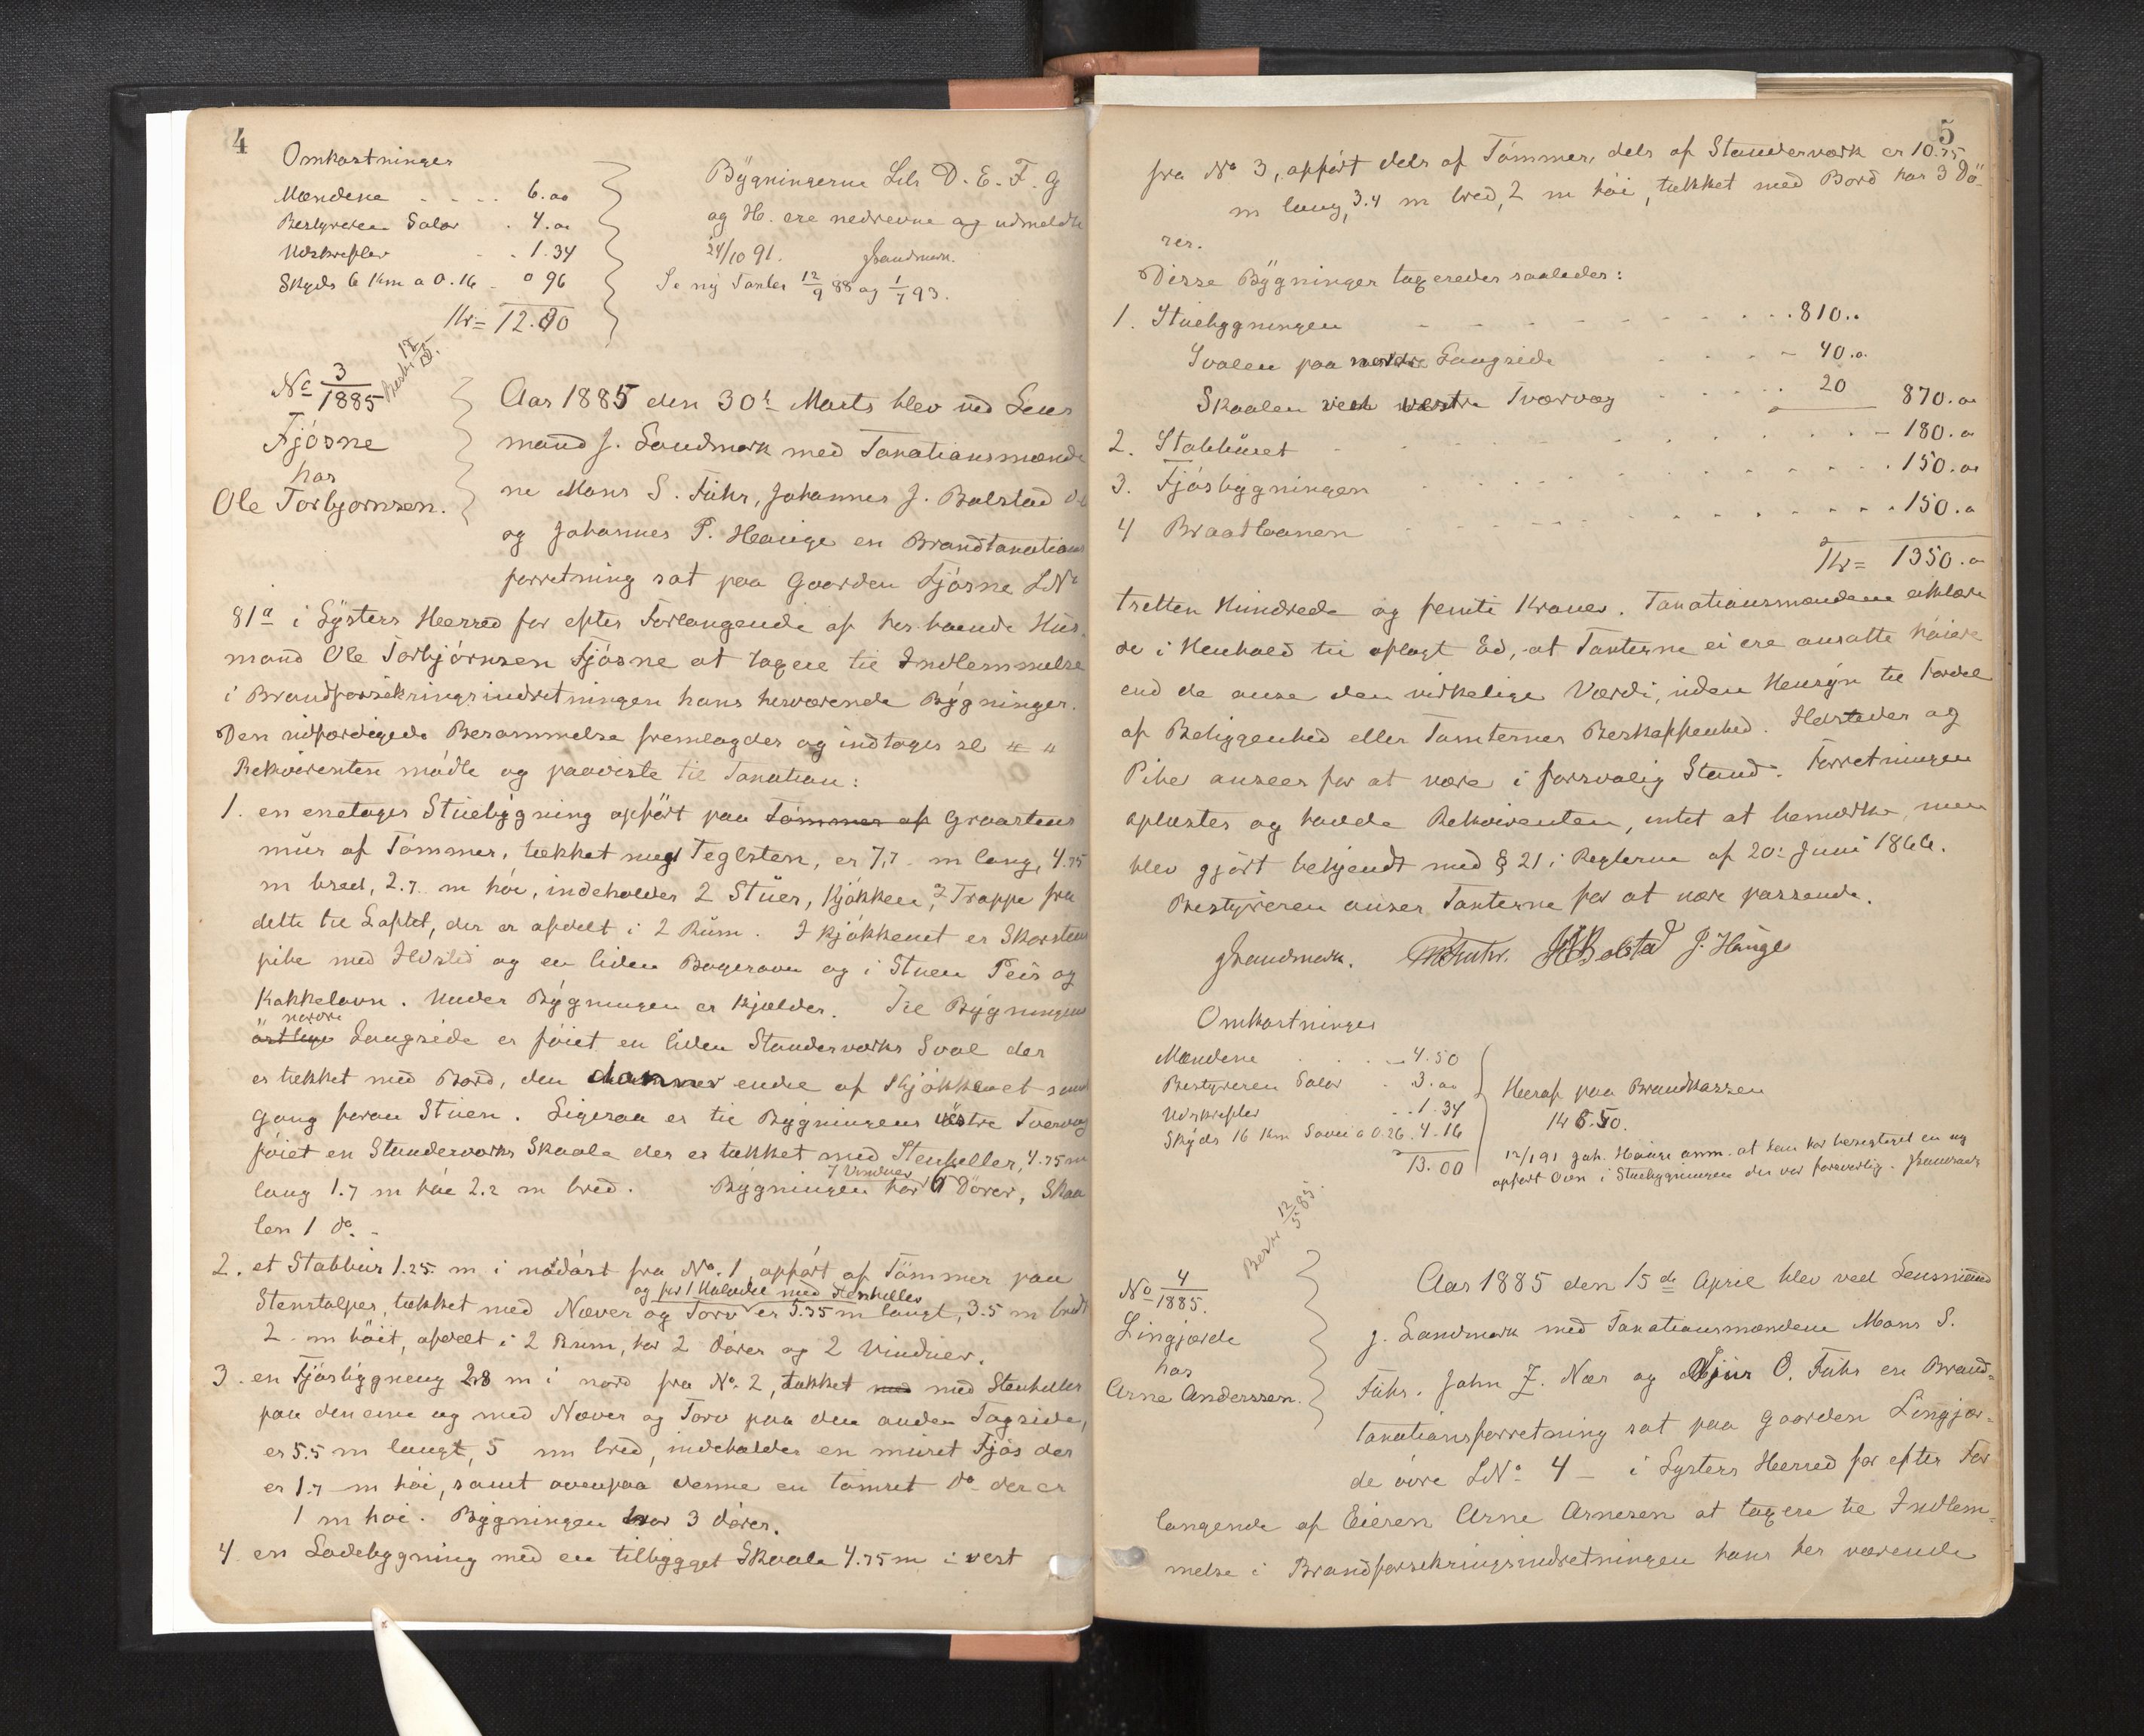 4
Omkostninger
Mændene 6.00
Bestyreren Salær 4.00
Udskrifter 1.34
Skyds 6 Km a 0.16 0 96
Kr = 12.30
Bygningerne Litr D. E. F. G
og H. ere nedrevne og udmeldte
24/10 91. JLandmark.
Se ny Taxter 12/9 88 og 1/7 93.
No 3/1885
Fjøsne
hos
Ole Torbjørnsen.
Aar 1885 den 30te Marts blev ved Lens
mand J. Landmark med Taxationsmænde
ne Mons S. Fuhr, Johannes J. Bolstad
og Johannes P. Hauge en Brandtaxations
forretning sat paa Gaarden Fjøsne LNo
81a i Lysters Herred for efter Forlangende af hos boende Hus
mand Ole Torbjørnsen Fjøsne at taxere til Indlemmelse
i Brandforsikringsindretningen hans herværende Bygninger.
Den udfærdigede Berammelse fremlagdes og indtages sl " "
Rekvirenten mødte og paaviste til Taxation:
1. en enetages Stuebygning opført paa Tømmer af Graastens
mur af Tømmer, tækket med Teglsten, er 7,7 m lang, 4.75
m bred, 2.7 m høi, indeholder 2 Stuer, Kjøkken, Trappe fra
dette til Loftet, der er afdelt i 2 Rum. I Kjøkkenet er Skorstens
pibe med Ildsted og en liden Bagerovn og i Stuen Peis og
Kakkelovn. Under Bygningen er Kjælder. Til Bygningens
nordre
østlige Langside er føiet en liden Standerværks Sval der
er tækket med Bord, den danner endel af Kjøkkenet samt
Gang foran Stuen. Ligesaa er til Bygningens vestre Tværvæg
føiet en Standerværks Skaale der er tækket med Stenheller, 4.75 m
lang 1.7 m høi 2.2 m bred. Bygningen har 7 Vinduer 6 Dører, Skaa
len 1 do.
2. et Stabbur 1.25 m i nordøst fra No. 1, opført af Tømmer paa
og for 1 Halvdel med Stenheller
Stenstolper, tækket med Næver og Torv er 5.35 m langt, 3.5 m bredt
2 m høit, afdelt i 2 Rum, har 2 Dører og 2 Vinduer.
3. en Fjøsbygning 28 m i nord fra No. 2, tækket med med Stenheller
paa den ene og med Næver og Torv paa den anden Tagside,
er 5.5 m langt, 5 m bred, indeholder en muret Fjøs der
er 1.7 m høi, samt ovenpaa denne en tømret do der er
1 m høi. Bygningen har 3 dører.
4. en Ladebygning med en tilbygget Skaale 4.75 m i vest
5
fra No 3, opført dels af Tømmer, dels af Standerværk er 10.75
m lang, 3.4 m bred, 2 m høi, tækket med Bord har 3 Dø-
rer.
Disse Bygninger taxeredes saaledes:
1. Stuebygningen 810..
Svalen paa nordre Langside 40.00
Skaalen ved vestre Tværvæg 20 870.00
2. Stabburet 180.00
3. Fjøsbygningen 150.00
4 Braatloanen 150.00
Kr = 1350.00
tretten Hundrede og femti Kroner. Taxationsmændene erklære
de i Henhold til aflagt Ed, at Taxterne ei ere ansatte høiere
end de anse den virkelige Værdi, uden Hensyn til Fordel
af Beliggenhed eller Tomternes Beskaffenhed. Ildsteder og
Piber ansees for at være i forsvarlig Stand. Forretningen
oplæstes og havde Rekvirenten intet at bemærke, men
blev gjørt bekjendt med § 21 i Reglerne af 20. Juni 1866.
Bestyreren anser Taxterne for at være passende.
JLandmark. MSFuhr. JJBolstad J. Hauge
Omkostninger
Mændene 4.50
Bestyreren Salær 3.00
Udskrifter 1.34
Skyds 16 Km a 0.26 4.16
13.00
Heraf paa Brandkassen
Kr 6.50.
12/1 91 Joh. Hauge anm. at han har besigtiget en ny
opført Ovn i Stuebygningen der var forsvarlig. JLandmark
Bestr 12/5 85.
No 4/1885.
Lingjærde
hos
Arne Anderssen.
Aar 1885 den 15de April blev ved Lensmand
J. Landmark med Taxationsmændene Mons S.
Fuhr, John J. Nær og Sjur O. Fuhr en Brand-
taxationsforretning sat paa Gaarden Lingjær-
de øvre LNo 4 i Lysters Herred for efter For
langende af Eieren Arne Arnesen at taxere til Indlem-
melse i Brandforsikringsindretningen hans her værende